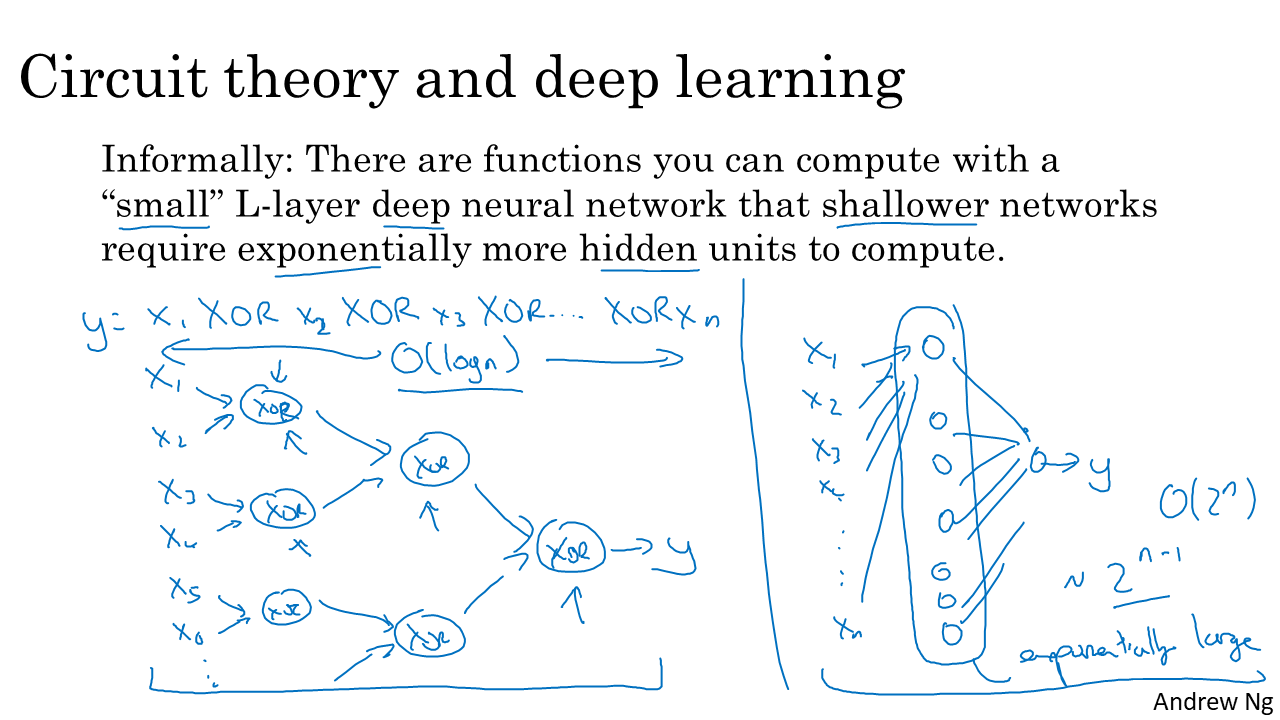 Circuit theory and deep learning
Informally: There are functions you can compute with a
“small” L-layer deep neural network that shallower networks
require exponentially more hidden units to compute.
y = x1 XOR x2 XOR x3 XOR .... XOR xn
O(log n)
x1
x2
XOR
x3
x4
XOR
x5
x6
XOR
XOR
XOR
XOR
y
x1
x2
x3
x4
xn
y
O(2^n)
~ 2^n-1
exponentially large
Andrew Ng